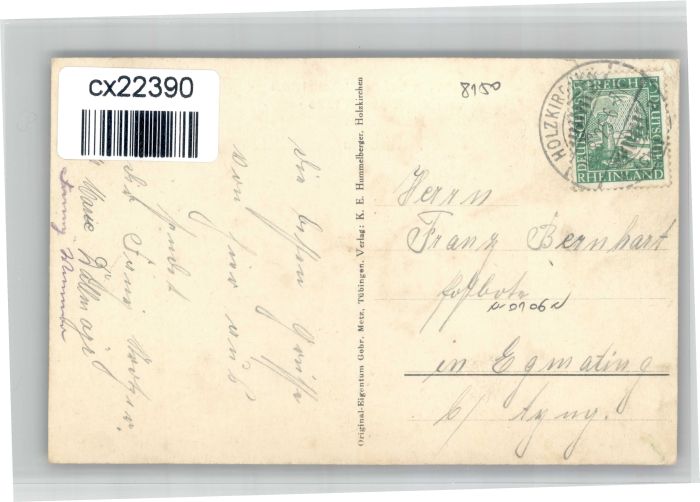 cx22390
8150
HOLZKIRCHEN
DEUTSCHES REICH
RHEINLAND
Original-Eigentum Gebr. Metz, Tübingen. Verlag: K. E. Hummelberger, Holzkirchen
Die besten Grüße
von hier aus
sendet
Marie Kollmair
Herrn
Franz Bernhart
Postbote
N 0706 N
in Egmating
b/ Ayng.